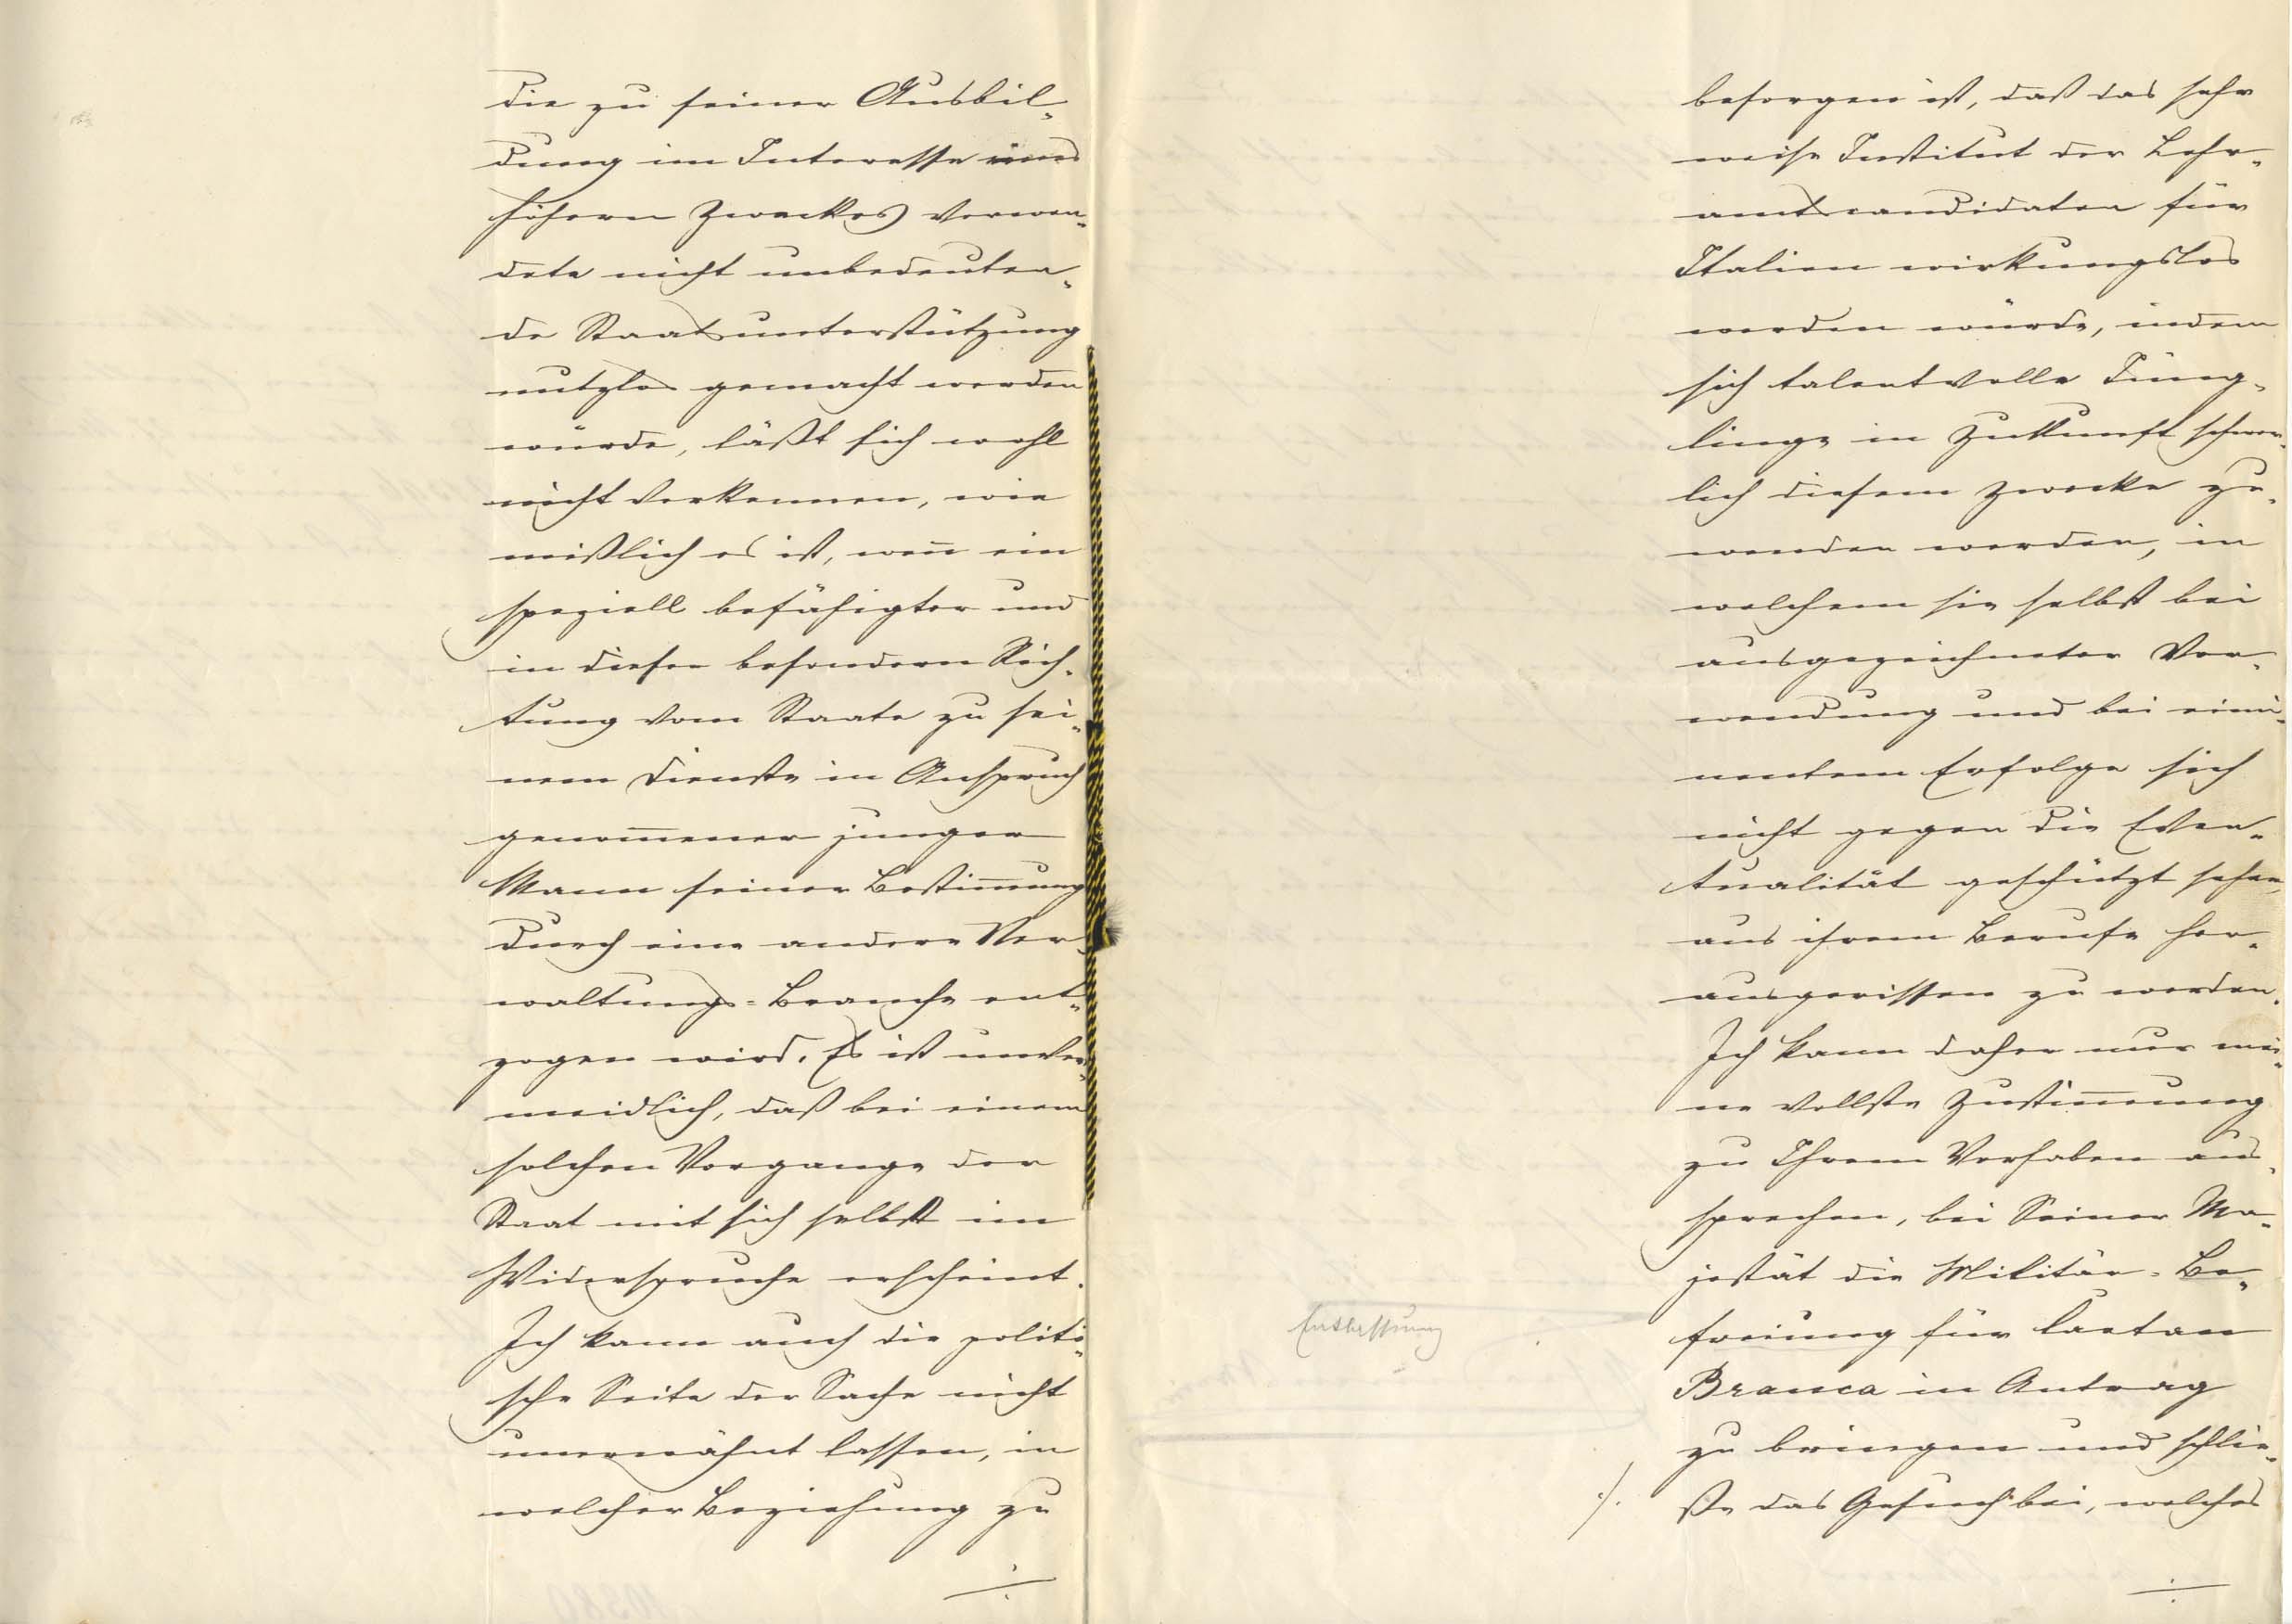 die zu seiner Ausbil-
dung im Interesse eines
höhern Zweckes verwen-
dete nicht unbedeuten-
de Staatsunterstützung
nutzlos gemacht werden
würde, läßt sich wohl
nicht verkennen, wie
mißlich es ist, wen̅ ein
speziell befähigter und
in dieser besondern Rich-
tung vom Staate zu sei-
nem Dienste in Anspruch
genom̅ener junger
Mann seiner Bestim̅ung
durch eine andere Ver-
waltungs-Branche ent-
zogen wird. Es ist unver-
meidlich, daß bei einem
solchen Vorgange der
Staat mit sich selbst im
Widerspruche erscheint.
Ich kann auch die politi-
sche Seite der Sache nicht
unerwähnt lassen, in
welcher Beziehung zu
./.
besorgen ist, daß das sehr
weise Institut der Lehr-
amtscandidaten für
Italien wirkungslos
werden würde, indem
sich talentvolle Jüng-
linge in Zukunft schwer-
lich diesem Zwecke zu-
wenden werden, in
welchem sie selbst bei
ausgezeichneter Ver-
wendung und bei emi-
nentem Erfolge sich
nicht gegen die Even-
tualität geschützt sehen,
aus ihrem Berufe her-
ausgerissen zu werden.
Ich kann daher nur mei-
ne vollste Zustim̅ung
zu Ihrem Vorhaben aus-
sprechen, bei Seiner Ma-
jestät die Militär-Be-
freiung für Caetan
Branca in Antrag
zu bringen und schlie-
ße das Gesuch bei, welches
./.
Entlassung
./.